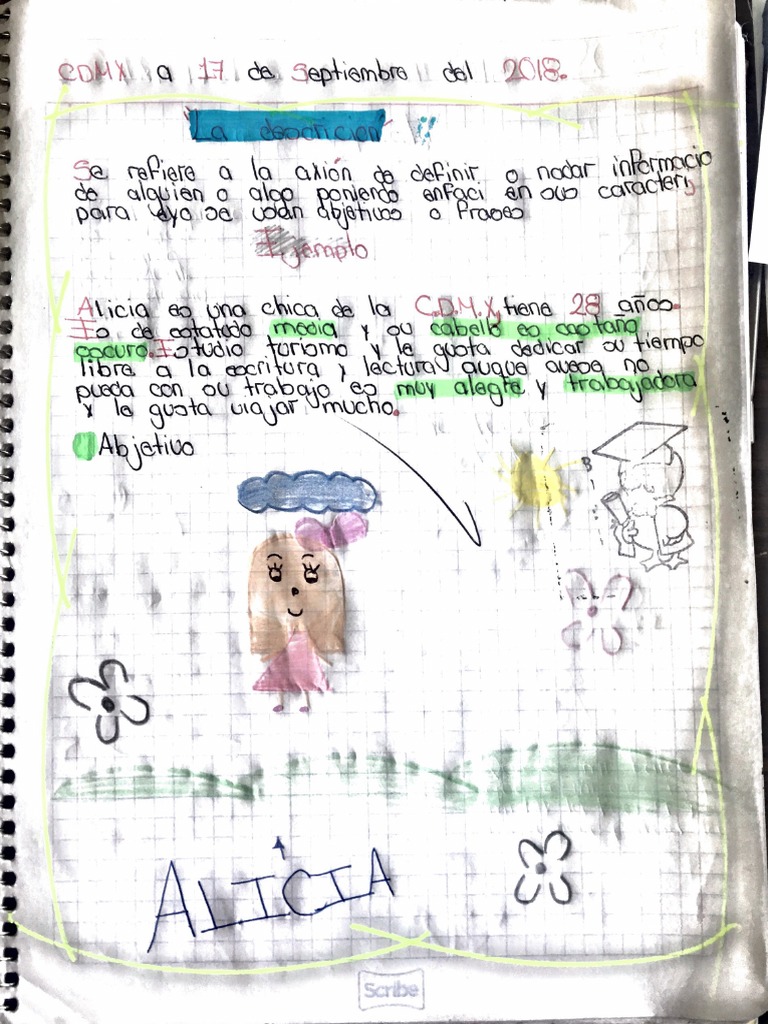 CDMX a 17 de Septiembre del 2018.
La descricien
Se refiere a la axión de definir o nodar informacio
de alguien o algo poniendo enfaci en sus caracteris
para eyo se usan abjetivos o frases
Ejemplo
Alicia es una chica de la C.D.M.X, tiene 28 años.
Es de estatado media y su cabello es castaño
oscuro. Estudio turismo y le gusta dedicar su tiempo
libre a la escritura y lectura auque aveses no
pueda con su trabajo es muy alegre y trabajadora
y le gusta viajar mucho.
Abjetivo
ALICIA
Scribe